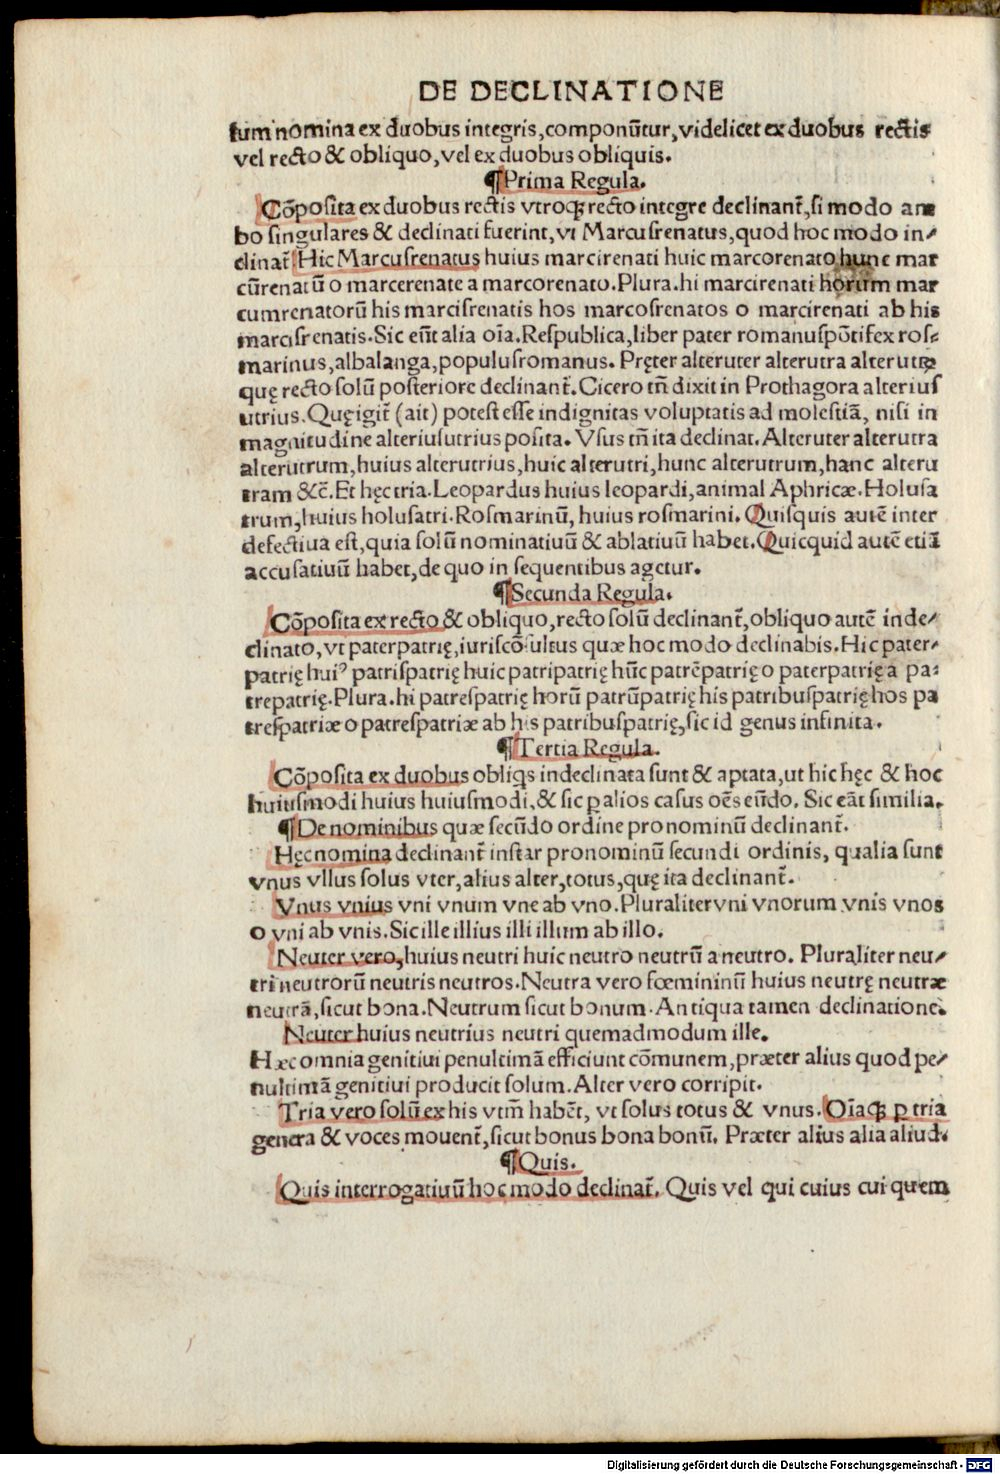 DE DECLINATIONE
tum nomina ex duobus integris, componũtur, videlicet ex duobus rectis
vel recto & obliquo, vel ex duobus obliquis.
¶Prima Regula.
Cõposita ex duobus rectis vtroqꝫ recto integre declinant̃, si modo am
bo singulares & declinati fuerint, vt Marcusrenatus, quod hoc modo in/
clinat̃ Hic Marcusrenatus huius marcirenati huic marcorenato hunc mar
cũrenatũ o marcerenate a marcorenato. Plura. hi marcirenati horum mar
cumrenatorũ his marcisrenatis hos marcosrenatos o marcirenati ab his
marcisrenatis. Sic eũt alia oĩa. Respublica, liber pater romanuspõtifex ros⸗
marinus, albalanga, populusromanus. Pręter alteruter alterutra alterutꝝ
quę recto solũ posteriore declinant̃. Cicero tñ dixit in Prothagora alterius
utrius. Quę igit̃ (ait) potest esse indignitas voluptatis ad molestiã, nisi in
magnitudine alteriusutrius posita. Vsus tñ ita declinat. Alteruter alterutra
alterutrum, huius alterutrius, huic alterutri, hunc alterutrum, hanc alteru
tram &c̃. Et hęc tria. Leopardus huius leopardi, animal Aphricæ. Holusa
trum, huius holusatri. Rosmarinũ, huius rosmarini. Quisquis autẽ inter
defectiua est, quia solũ nominatiuũ & ablatiuũ habet. Quicquid autẽ etiã
accusatiuũ habet, de quo in sequentibus agetur.
¶Secunda Regula.
Cõposita ex recto & obliquo, recto solũ declinant̃, obliquo autẽ inde/
clinato, vt paterpatrię, iuriscõsultus quæ hoc modo declinabis. Hic pater/
patrię huiꝰ patrispatrię huic patripatrię hũc patrẽpatrię o paterpatrię a pa⸗
trepatrię. Plura. hi patrespatrię horũ patrũpatrię his patribuspatrię hos pa
trespatriæ o patrespatriæ ab his patribuspatrię, sic id genus infinita.
¶Tertia Regula.
Cõposita ex duobus obliq̃s indeclinata sunt & aptata, ut hic hęc & hoc
huiusmodi huius huiusmodi, & sic ꝑ alios casus oẽs eũdo. Sic eãt similia.
¶De nominibus quæ secũdo ordine pronominũ declinant̃.
Hęc nomina declinant̃ instar pronominũ secundi ordinis, qualia sunt
vnus vllus solus vter, alius alter, totus, quę ita declinant̃.
Vnus vnius vni vnum vne ab vno. Pluraliter vni vnorum vnis vnos
o vni ab vnis. Sic ille illius illi illum ab illo.
Neuter vero, huius neutri huic neutro neutrũ a neutro. Pluraliter neu/
tri neutrorũ neutris neutros. Neutra vero fœmininũ huius neutrę neutræ
neutrã, sicut bona. Neutrum sicut bonum. Antiqua tamen declinatione.
Neuter huius neutrius neutri quemadmodum ille.
Hæc omnia genitiui penultimã efficiunt cõmunem, præter alius quod pe/
nultimã genitiui producit solum. Alter vero corripit.
Tria vero solũ ex his vtm̃ habẽt, vt solus totus & vnus. Oĩaqꝫ ꝑ tria
genera & voces mouent̃, sicut bonus bona bonũ. Præter alius alia aliud.
¶Quis.
Quis interrogatiuũ hoc modo declinat̃. Quis vel qui cuius cui quem
Digitalisierung gefördert durch die Deutsche Forschungsgemeinschaft - DFG